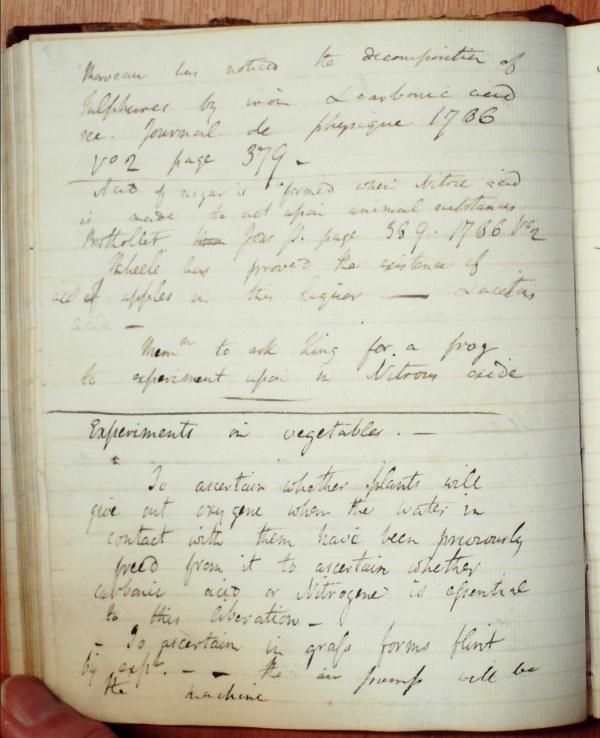 Morveau has noticed the decomposition of
Sulphures by iron & carbonic acid
see. Journal de physique 1786
Vo 2 page 379 –
Acid of sugar is formed when Nitric acid
is made to act upon animal substances
Berthollet Jour p. page 389. 1786 Vo 2
Scheele has proved the existence of
acid of apples in this liquor — & acetous
acid –
Mem^m to ask King for a frog
to experiment upon in Nitrous oxide
Experiments on vegetables. –
To ascertain whether plants will
give out oxygene when the water in
contact with them have been previously
freed from it to ascertain whether
carbonic acid or Nitrogene is essential
to this liberation –
– To ascertain in grass forms flint
by exp^t. – – the air pump will be
the machine